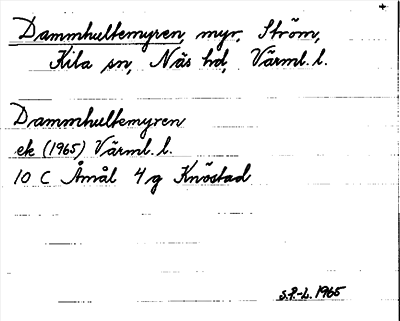 Dammhultemyren, myr, Ström,
Kila sn, Näs hd, Värml. l.
Dammhultemyren
ek (1965) Värml. l.
10 C Åmål 4g Knöstad
S.P.-L. 1965